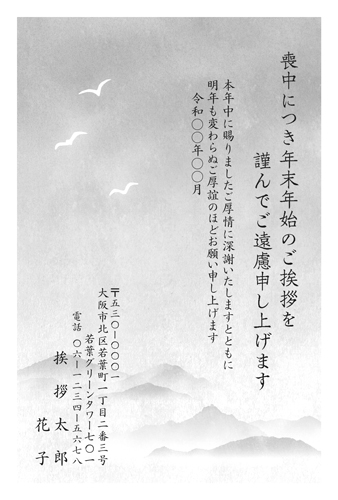 喪中につき年末年始のご挨拶を
謹んでご遠慮申し上げます
本年中に賜りましたご厚情に深謝いたしますとともに
明年も変わらぬご厚誼のほどお願い申し上げます
令和〇〇年〇〇月
〒五三〇-〇〇〇一
大阪市北区若葉町一丁目二番三号
若葉グリーンタワー七〇一
電話 〇六-一二三四-五六七八
挨拶太郎
花子